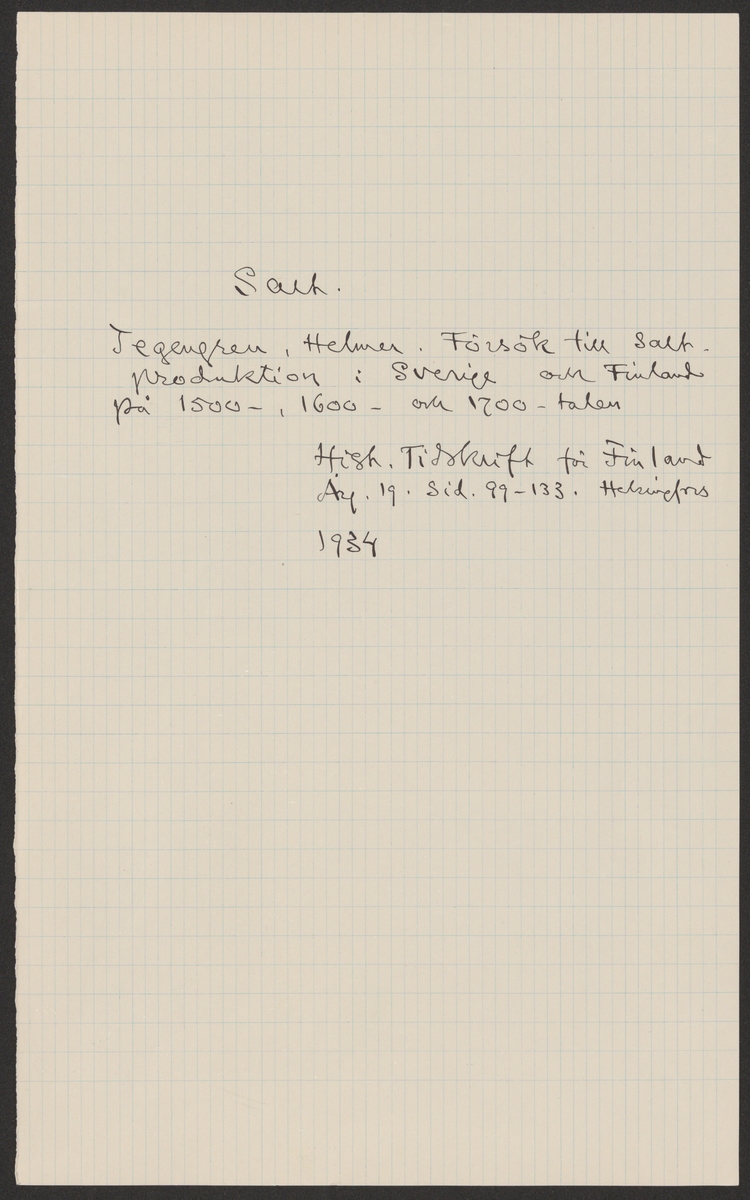 Salt.
Tegengren, Helmer. Försök till Salt-
produktion i Sverige och Finland
på 1500-, 1600- och 1700-talen
Hist. Tidskrift för Finland
Årg. 19. Sid. 99-133. Helsingfors
1934